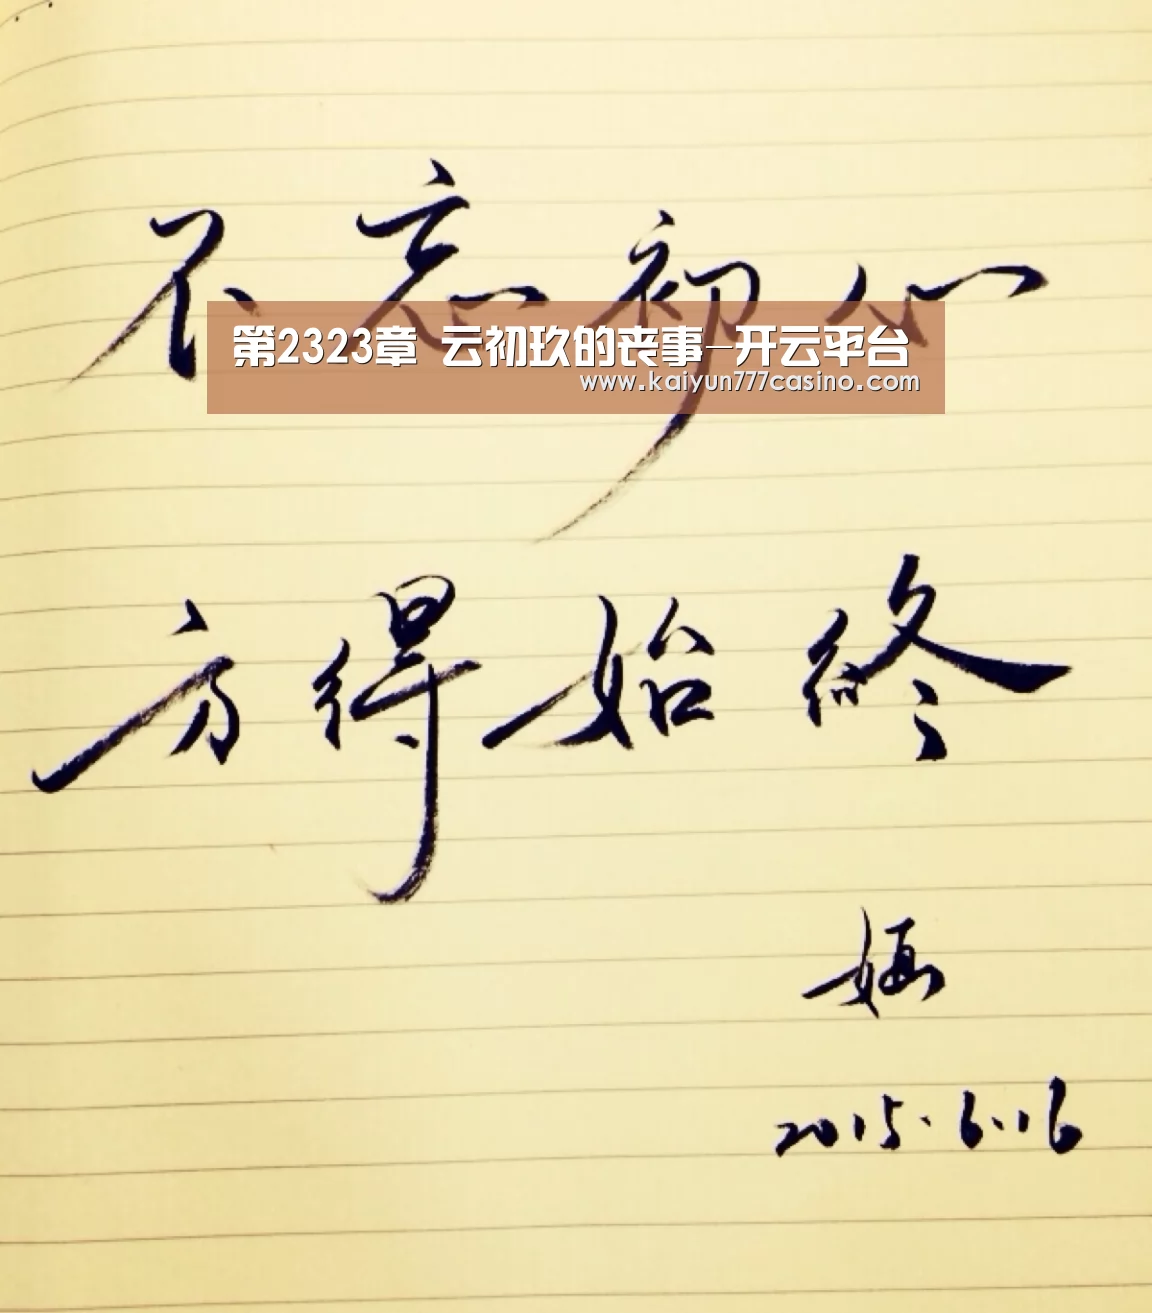 不忘初心
第2323章 云初玖的丧事–开云平台
www.kaiyun777casino.com
方得始终
2015.6.16